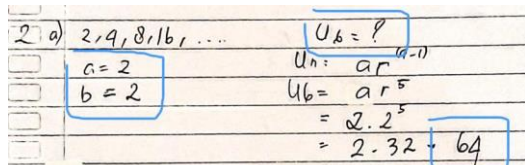 2 a) 2, 4, 8, 16, .... U6 = ?
a = 2 Un = ar^(n-1)
b = 2 U6 = ar^5
= 2.2^5
= 2.32 = 64